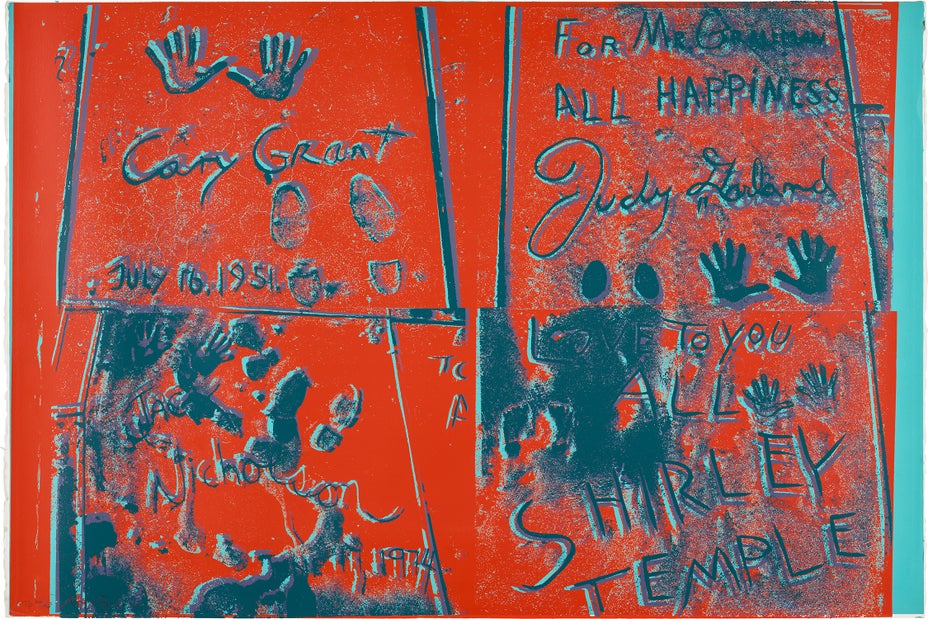 Cary Grant
JULY 16, 1951.
FOR MR. GRAUMAN
ALL HAPPINESS
Judy Garland
JACK
Nicholson
1974
LOVE To YOU
ALL
SHIRLEY
TEMPLE